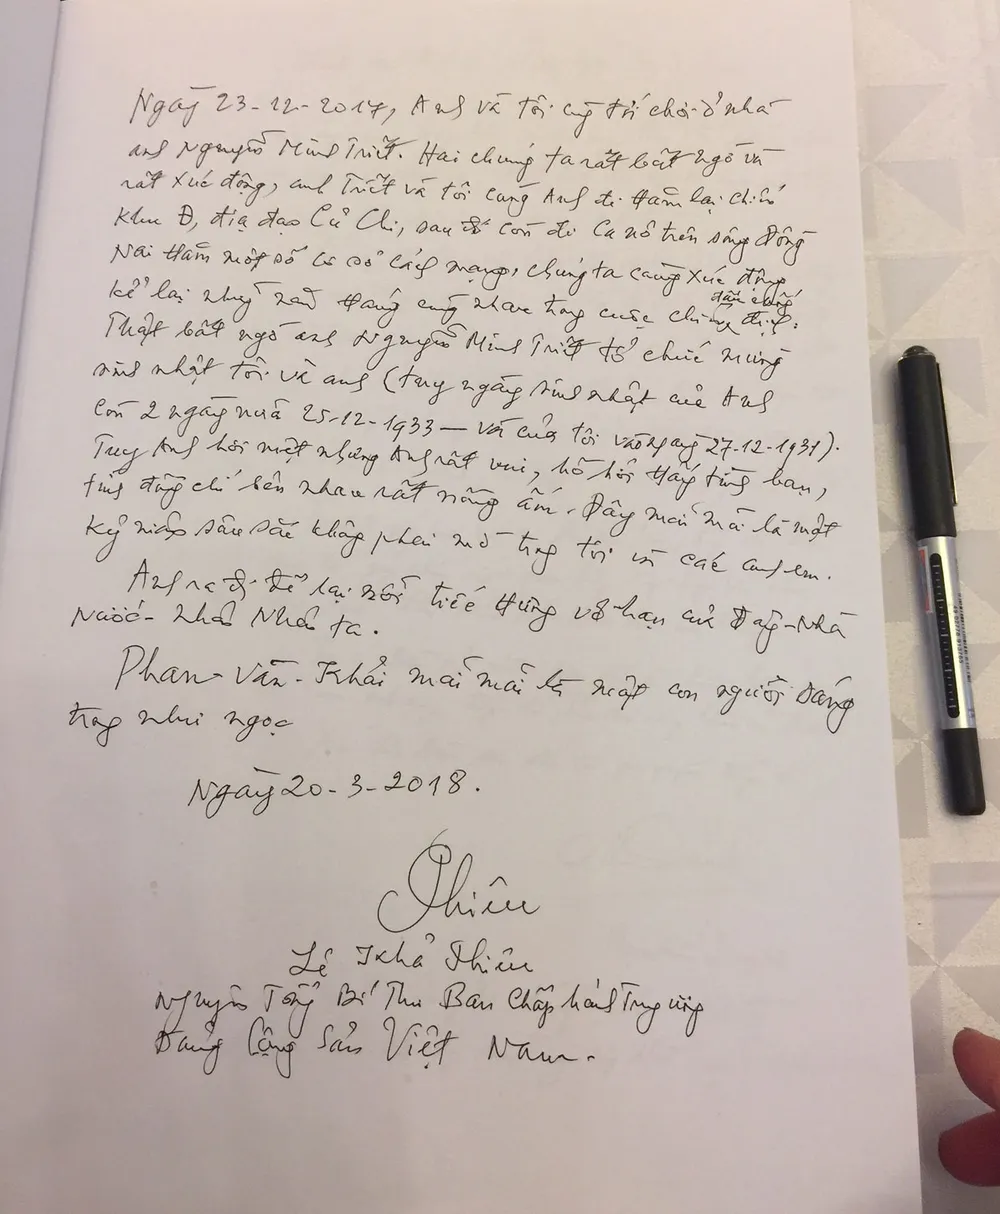 Ngày 23-12-2017, Anh và tôi cùng tới chơi ở nhà
anh Nguyễn Minh Triết. Hai chúng ta rất bất ngờ và
rất xúc động, anh Triết và tôi cùng Anh đi thăm lại chiến
khu Đ, địa đạo Củ Chi, sau đó còn đi Ca nô trên sông Đồng
Nai thăm một số cơ sở cách mạng, chúng ta càng xúc động
kể lại những năm tháng cùng nhau trong cuộc chiến đấu chống địch.
Thật bất ngờ anh Nguyễn Minh Triết tổ chức mừng
sinh nhật tôi và anh (tuy ngày sinh nhật của Anh
còn 2 ngày nữa 25-12-1933 — và của tôi vào ngày 27-12-1931).
Tuy Anh hơi mệt nhưng Anh rất vui, hồ hởi thấy từng bạn,
từng đồng chí bên nhau rất nồng ấm. Đây mãi mãi là một
kỷ niệm sâu sắc không phai mờ trong tôi và các anh em.
Anh ra đi để lại nỗi tiếc thương vô hạn của Đảng-Nhà
Nước- nhân Nhân ta.
Phan-Văn-Khải mãi mãi là một con người đáng
trọng như ngọc
Ngày 20-3-2018.
Phiêu
Lê Khả Phiêu
Nguyên Tổng Bí Thư Ban Chấp hành Trung ương
Đảng Cộng Sản Việt Nam.